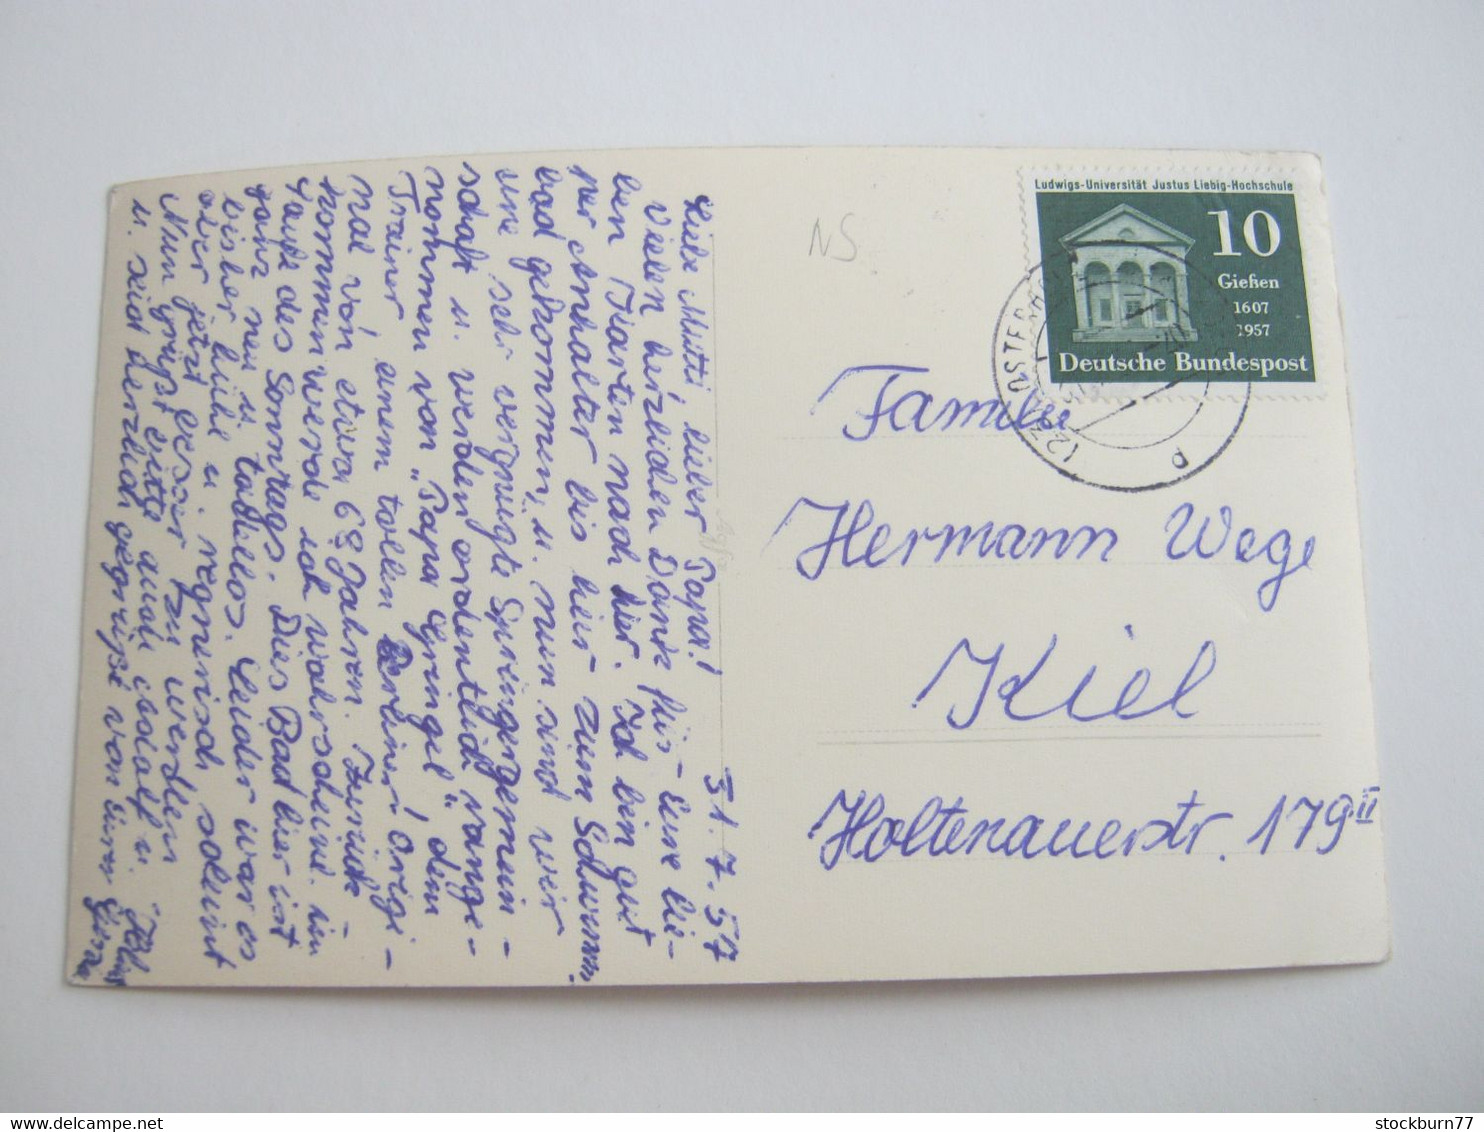 31.7.57
Liebe Mutti, lieber Papa!
Vielen herzlichen Dank für Eure lie-
ben Karten nach hier. Ich bin gut
per Anhalter bis hier zum Schwimm
bad gekommen, u. nun sind wir
eine sehr vergnügte Springergemein-
schaft u. werden ordentlich range-
nommen von „Papa Gringel", dem
Trainer einem tollen Berliner Origi-
nal von etwa 68 Jahren. Zurück
kommen werde ich wahrscheinl. im
Laufe des Sonntags. Dies Bad hier ist
ganz neu u. tadellos. Leider war es
bisher kühl u. regnerisch scheint
aber jetzt besser zu werden
Nun grüßt bitte auch u.
u. seid herzlich gegrüßt von Eurer
NS
Ludwigs-Universität Justus Liebig-Hochschule
10
Gießen
1607
1957
Deutsche Bundespost
Familie
Hermann Wege
Kiel
Holtenauerstr. 179 II
stockburn77